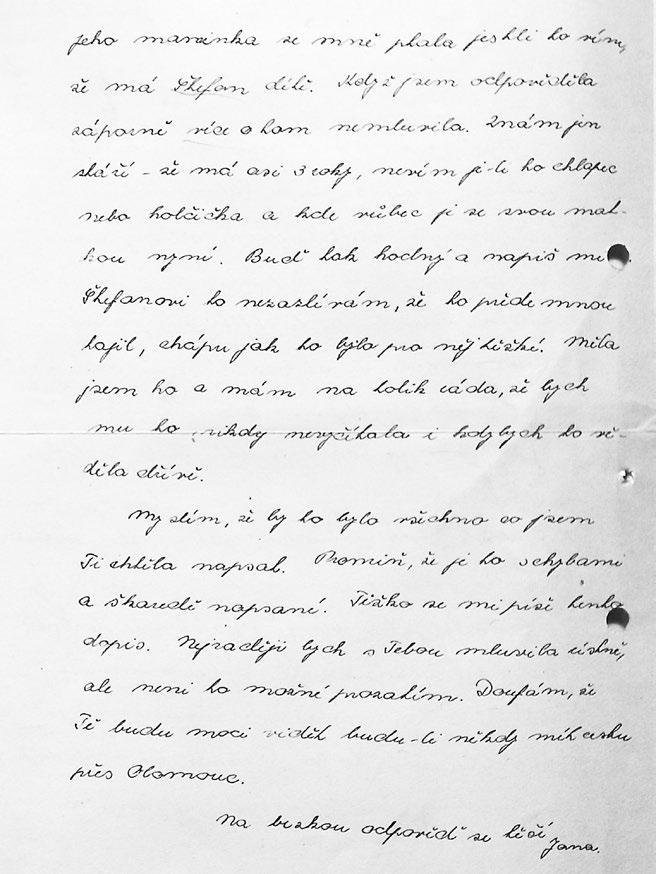 jeho maminka se mně ptala jestli to vím,
že má Štefan dítě. Když jsem odpověděla
záporně více o tom nemluvila. Znám jen
stáří - že má asi 3 roky, nevím je-li to chlapec
nebo holčička a kde vůbec je se svou mat-
kou nyní. Buď tak hodný a napiš mi
Štefanovi to nezazlívám, že to přede mnou
tajil, chápu jak to bylo pro něj těžké. Měla
jsem ho a mám na tolik ráda, že bych
mu to nikdy nevyčítala i kdybych to vě-
děla dříve.
Myslím, že by to bylo všechno co jsem
Ti chtěla napsat. Promiň, že je to s chybami
a škaredě napsané. Těžko se mi píše tento
dopis. Nejraději bych s Tebou mluvila ústně,
ale není to možné prozatím. Doufám, že
Tě budu moci vidět budu-li někdy mít cestu
přes Olomouc.
Na brzkou odpověď se těší
Jana.